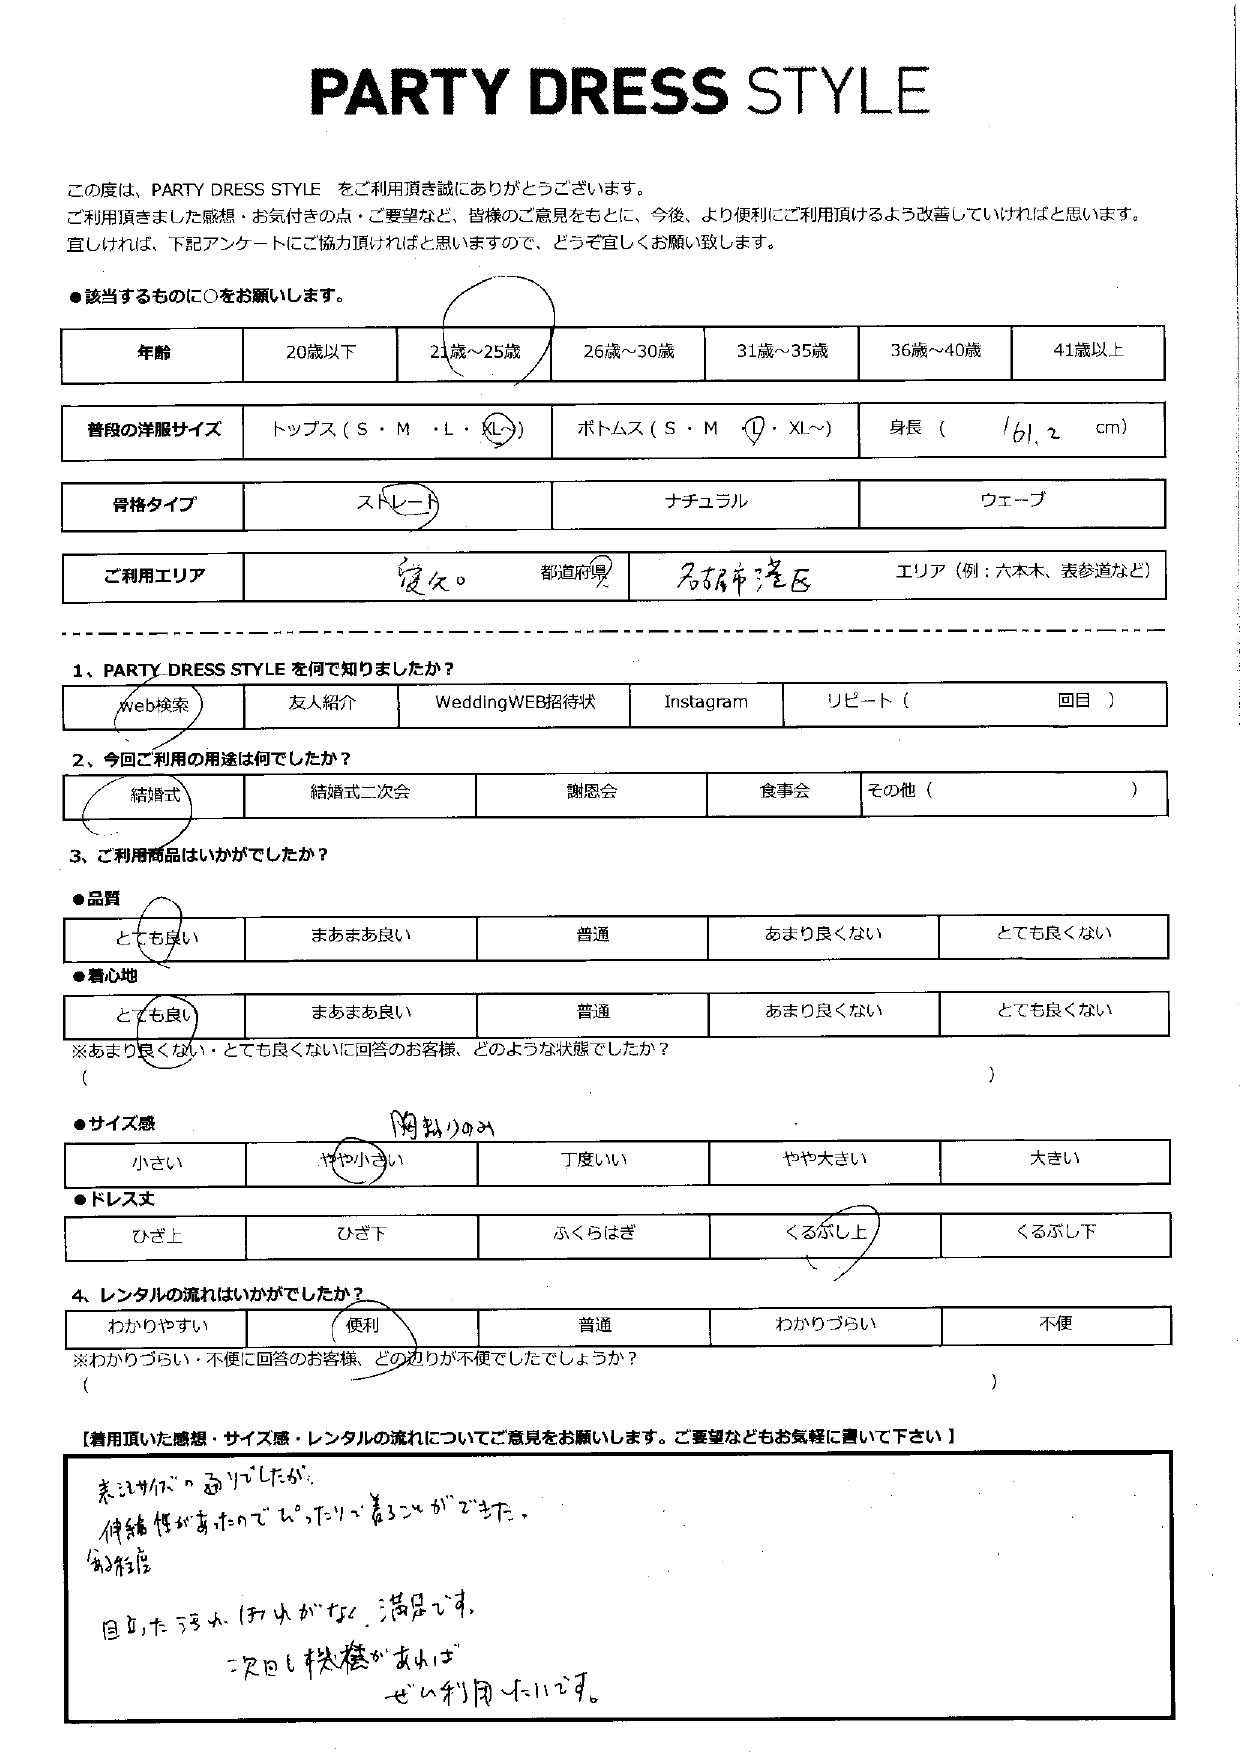 PARTY DRESS STYLE
この度は、PARTY DRESS STYLE をご利用頂き誠にありがとうございます。
ご利用頂きました感想・お気付きの点・ご要望など、皆様のご意見をもとに、今後、より便利にご利用頂けるよう改善していければと思います。
宜しければ、下記アンケートにご協力頂ければと思いますので、どうぞ宜しくお願い致します。
●該当するものに○をお願いします。
年齢 20歳以下 21歳～25歳 26歳～30歳 31歳～35歳 36歳～40歳 41歳以上
普段の洋服サイズ トップス ( S ・ M ・L ・ XL～) ボトムス ( S ・ M ・L・ XL～) 身長 ( 161.2 cm)
骨格タイプ ストレート ナチュラル ウェーブ
ご利用エリア 愛知 都道府県 名古屋市港区 エリア（例：六本木、表参道など）
1、PARTY DRESS STYLE を何で知りましたか？
Web検索 友人紹介 WeddingWEB招待状 Instagram リピート（ 回目 ）
2、今回ご利用の用途は何でしたか？
結婚式 結婚式二次会 謝恩会 食事会 その他（ ）
3、ご利用商品はいかがでしたか？
●品質
とても良い まあまあ良い 普通 あまり良くない とても良くない
●着心地
とても良い まあまあ良い 普通 あまり良くない とても良くない
※あまり良くない・とても良くないに回答のお客様、どのような状態でしたか？
（ ）
●サイズ感 胸まわりのみ
小さい やや小さい 丁度いい やや大きい 大きい
●ドレス丈
ひざ上 ひざ下 ふくらはぎ くるぶし上 くるぶし下
4、レンタルの流れはいかがでしたか？
わかりやすい 便利 普通 わかりづらい 不便
※わかりづらい・不便に回答のお客様、どの辺りが不便でしたでしょうか？
（ ）
【着用頂いた感想・サイズ感・レンタルの流れについてご意見をお願いします。ご要望などもお気軽に書いて下さい 】
表記サイズの通りでしたが、
伸縮性があったのでぴったりで着ることができた。
ある程度
目立った汚れ、ほつれがなく、満足です。
次回も機会があれば
ぜひ利用したいです。